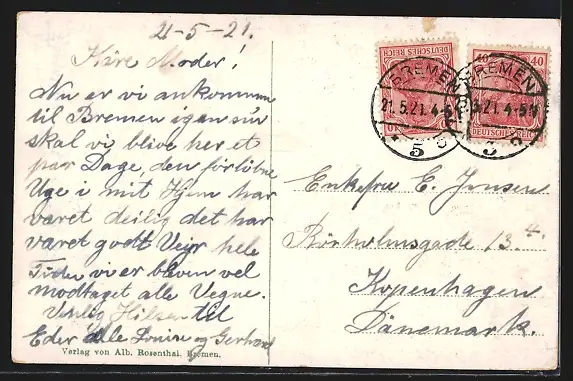 21-5-21.
Kære Moder!
Nu er vi ankommen
til Bremen igen nu
skal vi blive her et
par Dage, den forløbne
Uge i mit Hjem har
været deilig det har
været godt Veyr hele
Tiden vi er bleven vel
modtaget alle Vegne.
Venlig Hilsen til
Eder alle Louise og Gerhard
Verlag von Alb. Rosenthal, Bremen.
DEUTSCHES REICH
40
BREMEN
21.5.21. 4-5
5
40 40
BREMEN
5.21. 4-5
DEUTSCHES REICH
Enkefru E. Jensen
13 4.
Kopenhagen
Dänemark.